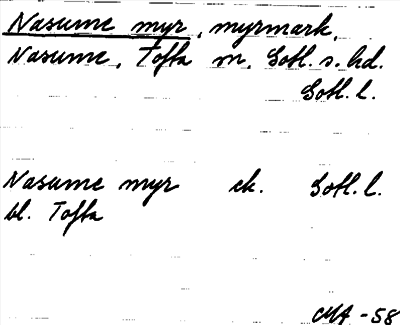 Nasume myr, myrmark,
Nasume, Tofta sn, Gotl. s. hd.
Gotl. l.
Nasume myr ek. Gotl. l.
bl. Tofta
MA -58